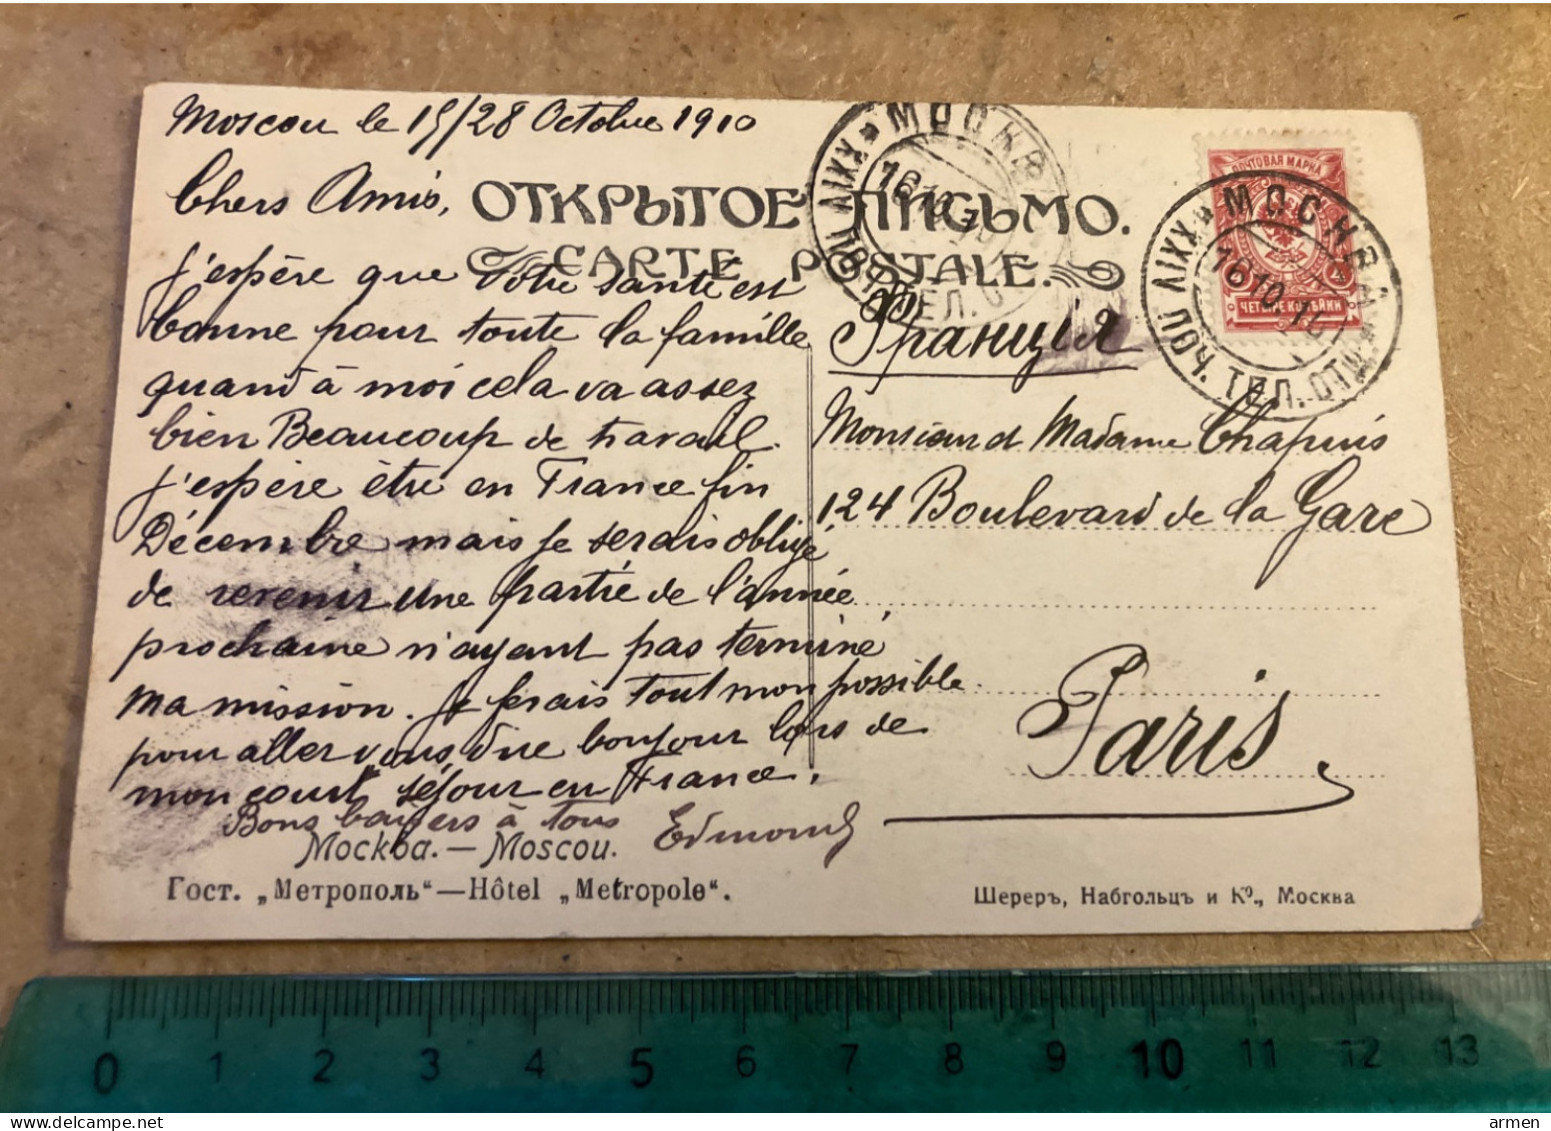 Moscou le 15/28 Octobre 1910
Chers Amis,
ОТКРЫТОЕ ПИСЬМО.
CARTE POSTALE.
j'espère que votre santé est
bonne pour toute la famille
quand à moi cela va assez
bien Beaucoup de travail.
j'espère être en France fin
Décembre mais je serais obligé
de revenir une partie de l'année
prochaine n'ayant pas terminé
ma mission. je ferais tout mon possible
pour aller vous dire bonjour lors de
mon court séjour en France.
Bons baisers à tous
Edmond
Москва. — Moscou.
Гост. „Метрополь“ — Hôtel „Metropole“.
Шереръ, Набгольцъ и Ко., Москва
ПОЧТОВАЯ МАРКА
ЧЕТЫРЕ КОПѢЙКИ
МОСКВА
16 10 10
XXIV ПОЧ. ТЕЛ. ОТД.
МОСКВА
16 10 10
XXIV ПОЧ. ТЕЛ. ОТД.
Франція
Monsieur et Madame Chapuis
124 Boulevard de la Gare
Paris.
0 1 2 3 4 5 6 7 8 9 10 11 12 13
armen